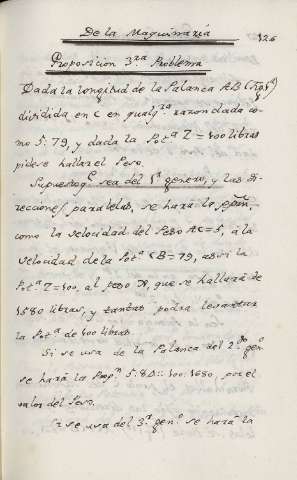 De la Maquinaria 126
Proposicion 3.ra Problema
Dada la longitud de la Palanca AB
dividida en C en qualq.ra razon dada co-
mo 5. 79, y dada la Pot.a Z = 100 libras
pidese hallar el Peso.
Supuesto q.e sea del 1.o genero, y las di-
recciones paralelas, se hará la
como la velocidad del Peso AC=5, a la
velocidad de la Pot.a CB=79, assi la
Pot.a Z=100, al peso que se hallará de
1580 libras, y tantas podra levantar
la Pot.a de 100 libras.
Si se usa de la Palanca del 2.do gen.o
se hará la Prop.n 5. 84:: 100. 1680, por el
valor del Peso.
Y se usa del 3.o gen.o se hará la